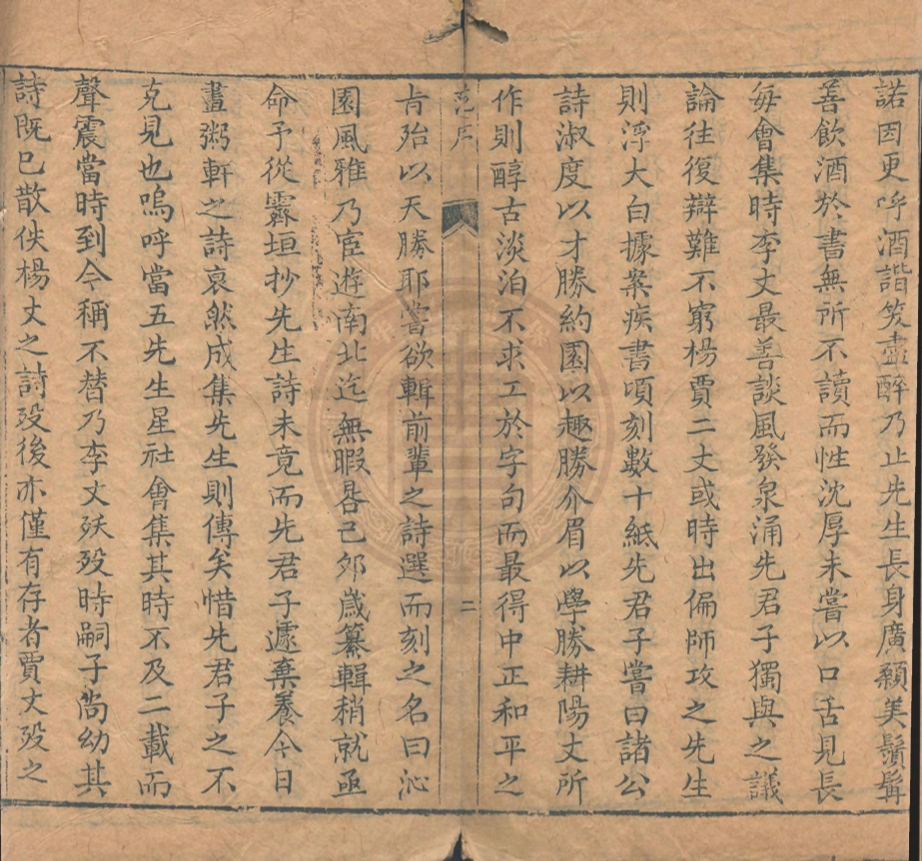 諾因更呼酒諧笑盡醉乃止先生長身廣顙美鬚髯
善飲酒於書無所不讀而性沈厚未嘗以口舌見長
每會集時李丈最善談風發泉涌先君子獨與之議
論往復辯難不窮楊賈二丈或時出偏師攻之先生
則浮大白據案疾書頃刻數十紙先君子嘗曰諸公
詩淑度以才勝約園以趣勝介眉以學勝耕陽丈所
作則醇古淡泊不求工於字句而最得中正和平之
序
二
肯殆以天勝耶嘗欲輯前輩之詩選而刻之名曰沁
園風雅乃宦遊南北迄無暇晷己卯歲纂輯稍就亟
命予從霽垣抄先生詩未竟而先君子遽棄養今日
畫粥軒之詩裒然成集先生則傳矣惜先君子之不
克見也嗚呼當五先生星社會集其時不及二載而
聲震當時到今稱不替乃李丈殀歿時嗣子尚幼其
詩既已散佚楊丈之詩歿後亦僅有存者賈丈歿之